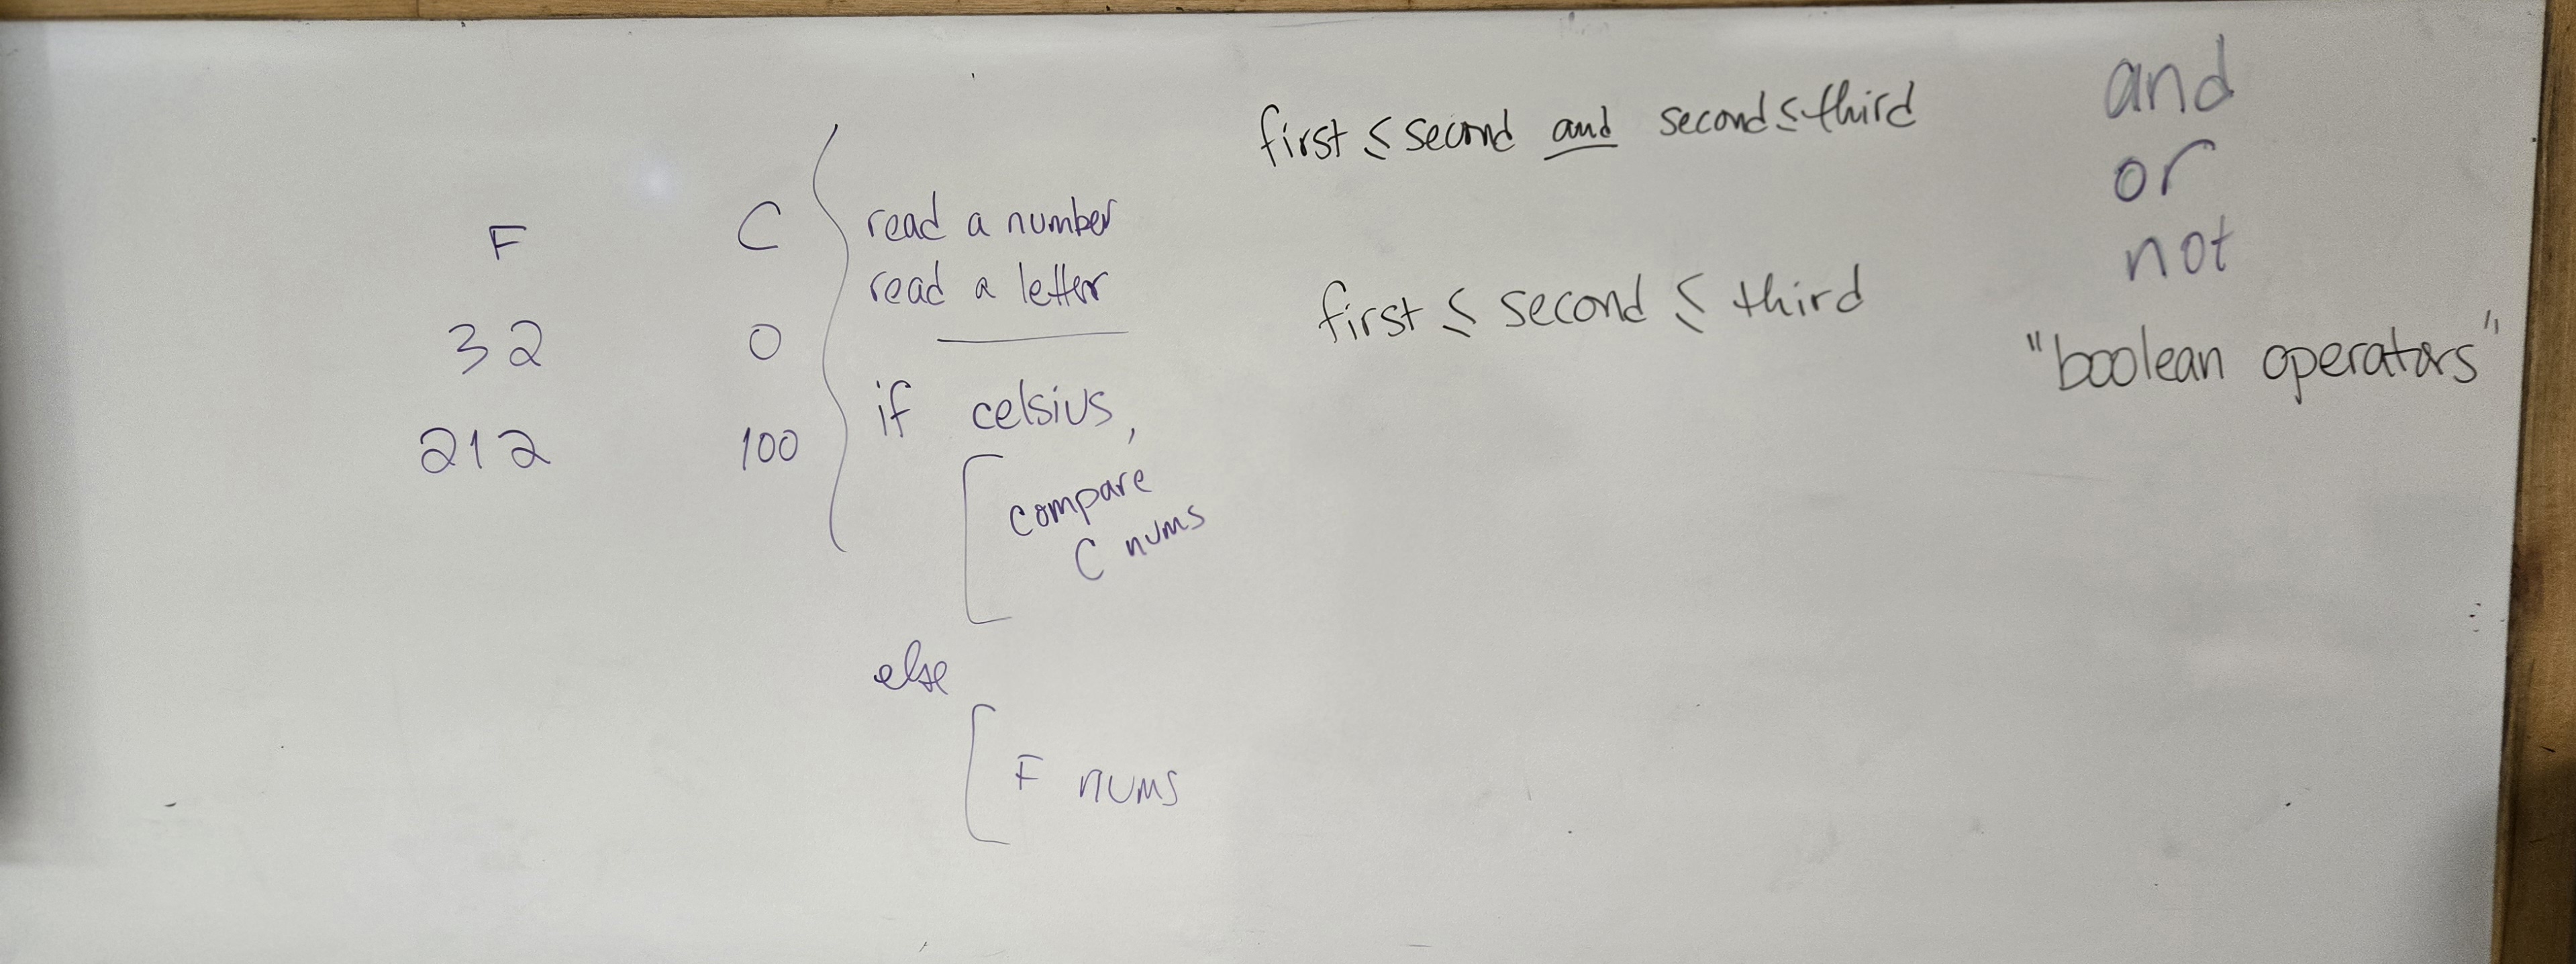 F C
32 0
212 100
read a number
read a letter
if celsius,
compare
C nums
else
F nums
first ≤ second and second ≤ third
first ≤ second ≤ third
and
or
not
"boolean operators"